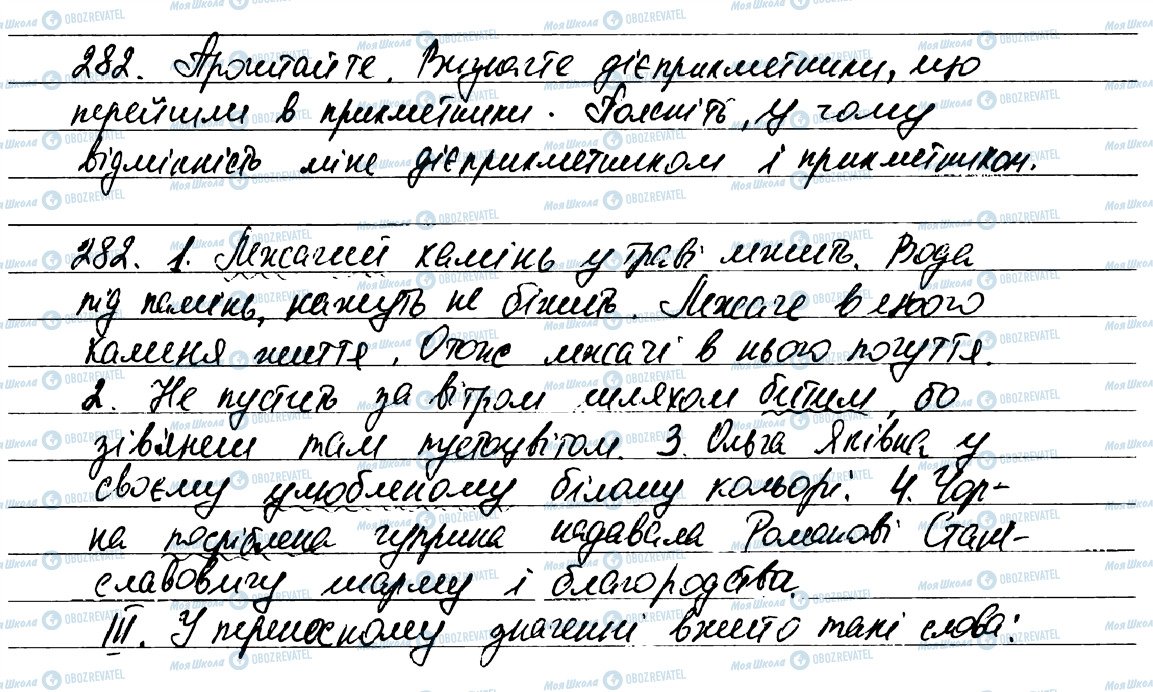 282. Прочитайте. Визначте дієприкметники, що
перейшли в прикметники. Поясніть, у чому
відмінність між дієприкметником і прикметником.
282. 1. Лежачий камінь у траві лежить. Вода
під камінь, кажуть не біжить. Лежаче в нього
каменя життя. Отож лежачі в нього почуття.
2. Не пустить за вітром шляхом битим, бо
зів'янеш там пустоцвітом. 3. Ольга Яківна у
своєму улюбленому білому кольорі. 4. Чор-
на посріблена чуприна надавала Романові Стані-
славовичу шарму і благородства.
III. У переносному значенні вжито такі слова: